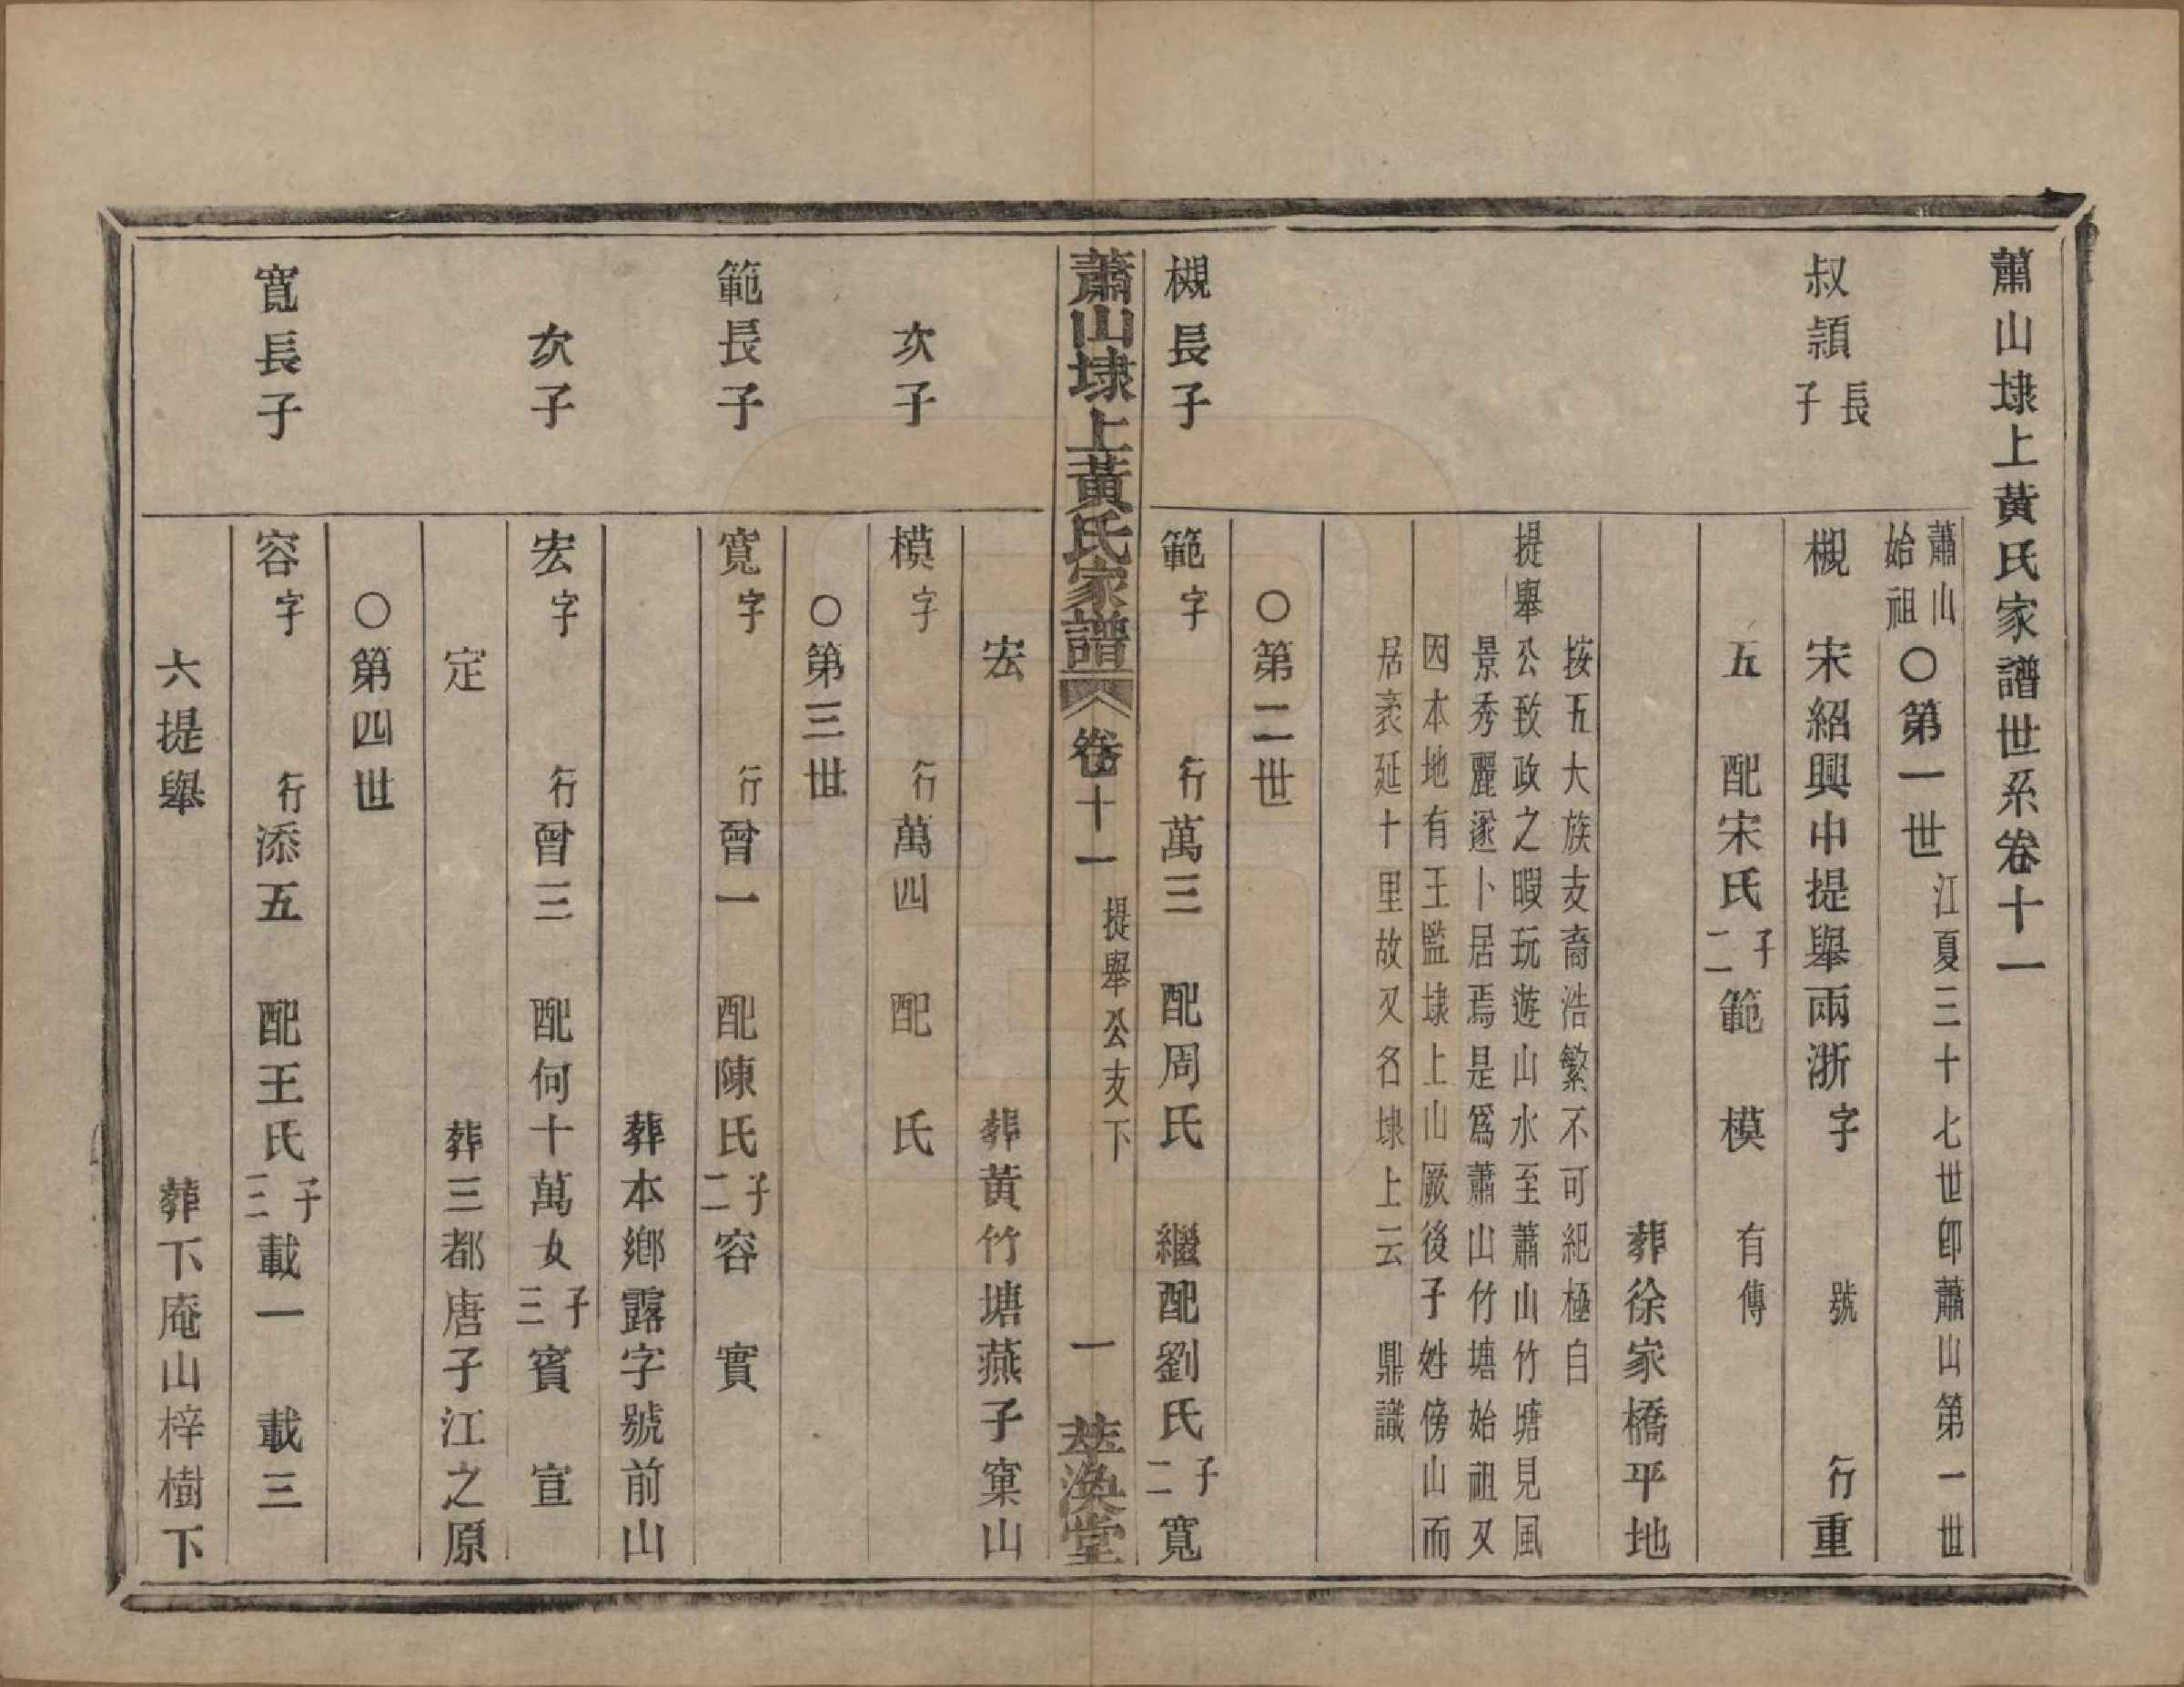 蕭山埭上黃氏家譜世系卷十一
蕭山始祖○第一世江夏三十七世卽蕭山第一世
叔頴長子
槻 宋紹興中提舉兩浙 字 號 行重
五 配宋氏子二範 模 有傳
葬徐家橋平地
按五大族支裔浩繁不可紀極自
提舉公致政之暇玩遊山水至蕭山竹塘見風
景秀麗遂卜居焉是爲蕭山竹塘始祖又
因本地有王監埭上山厥後子姓傍山而
居袤延十里故又名埭上云 鼎識
○第二世
槻長子
範字 行萬三 配周氏 繼配劉氏子二寬
蕭山埭上黃氏家譜 卷十一 提舉公支下 一 萃渙堂
宏 葬黃竹塘燕子窠山
次子
模字 行萬四 配 氏
○第三世
範長子
寬字 行曾一 配陳氏子二容 實
葬本鄉露字號前山
次子
宏字 行曾三 配何十萬女子三賓 宣
定 葬三都唐子江之原
○第四世
寬長子
容字 行添五 配王氏子三載一 載三
六提舉 葬下庵山梓樹下